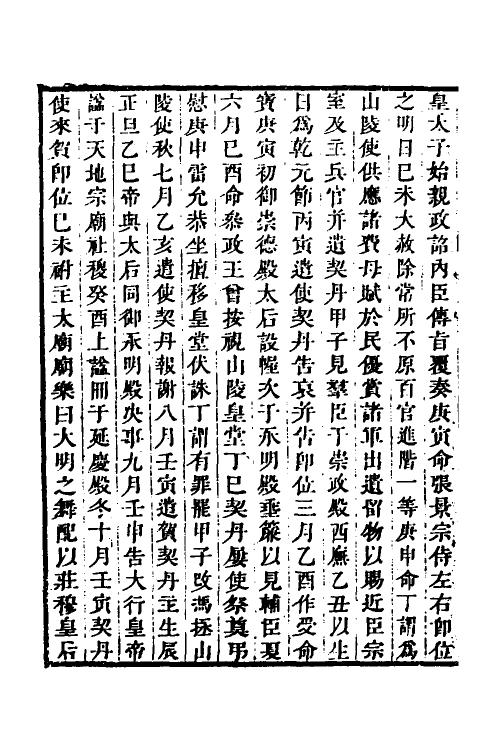 皇太子始親政詔内臣傳旨覆奏庚寅命張景宗侍左右卽位
之明日巳未大赦除常所不原百官進階一等庚申命丁謂爲
山陵使供應諸費毋賦於民優賞諸軍出遺留物以賜近臣宗
室及主兵官并遣契丹甲子見羣臣于崇政殿西廡乙丑以生
日爲乾元節丙寅遣使契丹告哀并告卽位三月乙酉作受命
寶庚寅初御崇德殿太后設幄次于永明殿垂簾以見輔臣夏
六月巳酉命叅政王曾按視山陵皇堂丁巳契丹屢使祭奠弔
慰庚申雷允恭坐擅移皇堂伏誅丁謂有罪罷甲子改馮拯山
陵使秋七月乙亥遣使契丹報謝八月壬寅遣賀契丹主生辰
正旦乙巳帝與太后同御承明殿决事九月壬申告大行皇帝
諡于天地宗廟社稷癸酉上諡冊于延慶殿冬十月壬寅契丹
使來賀卽位巳未祔主太廟廟樂曰大明之舞配以莊穆皇后